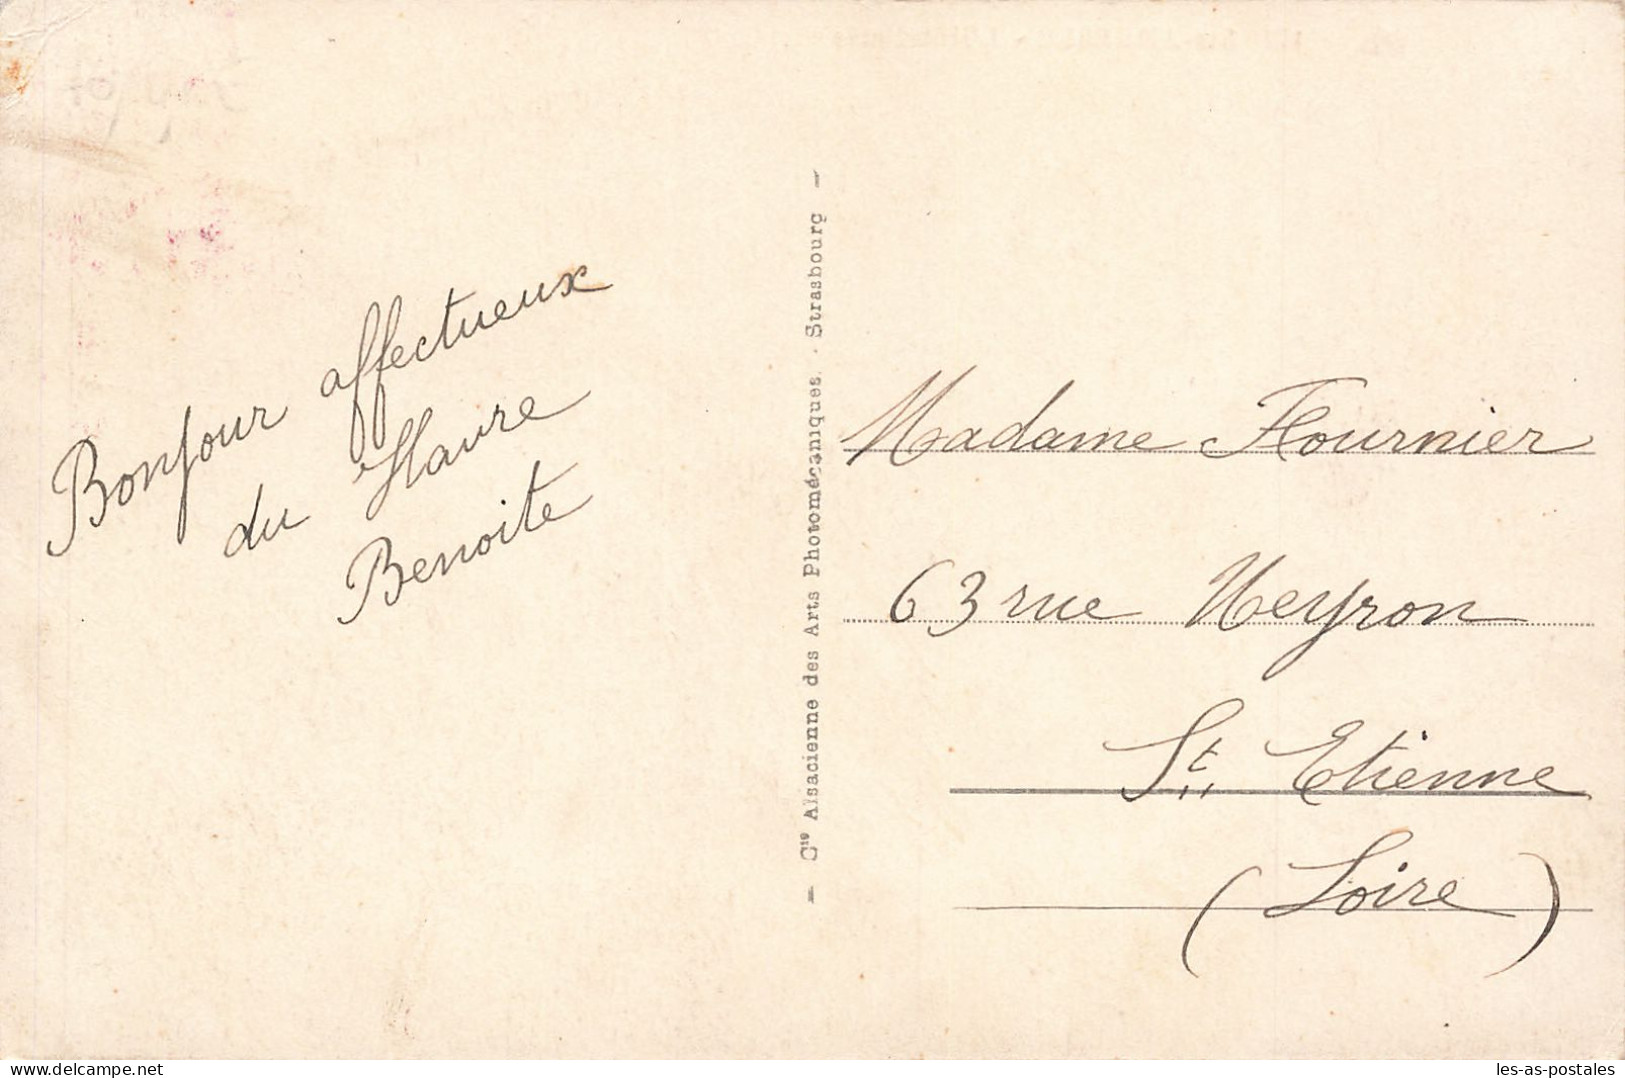 Bonjour affectueux
du Havre
Benoite
— Cie Alsacienne des Arts Photomécaniques. - Strasbourg —
Madame Flournier
63 rue Neyron
St. Etienne
(Loire)
delcampe.net
les-as-postales